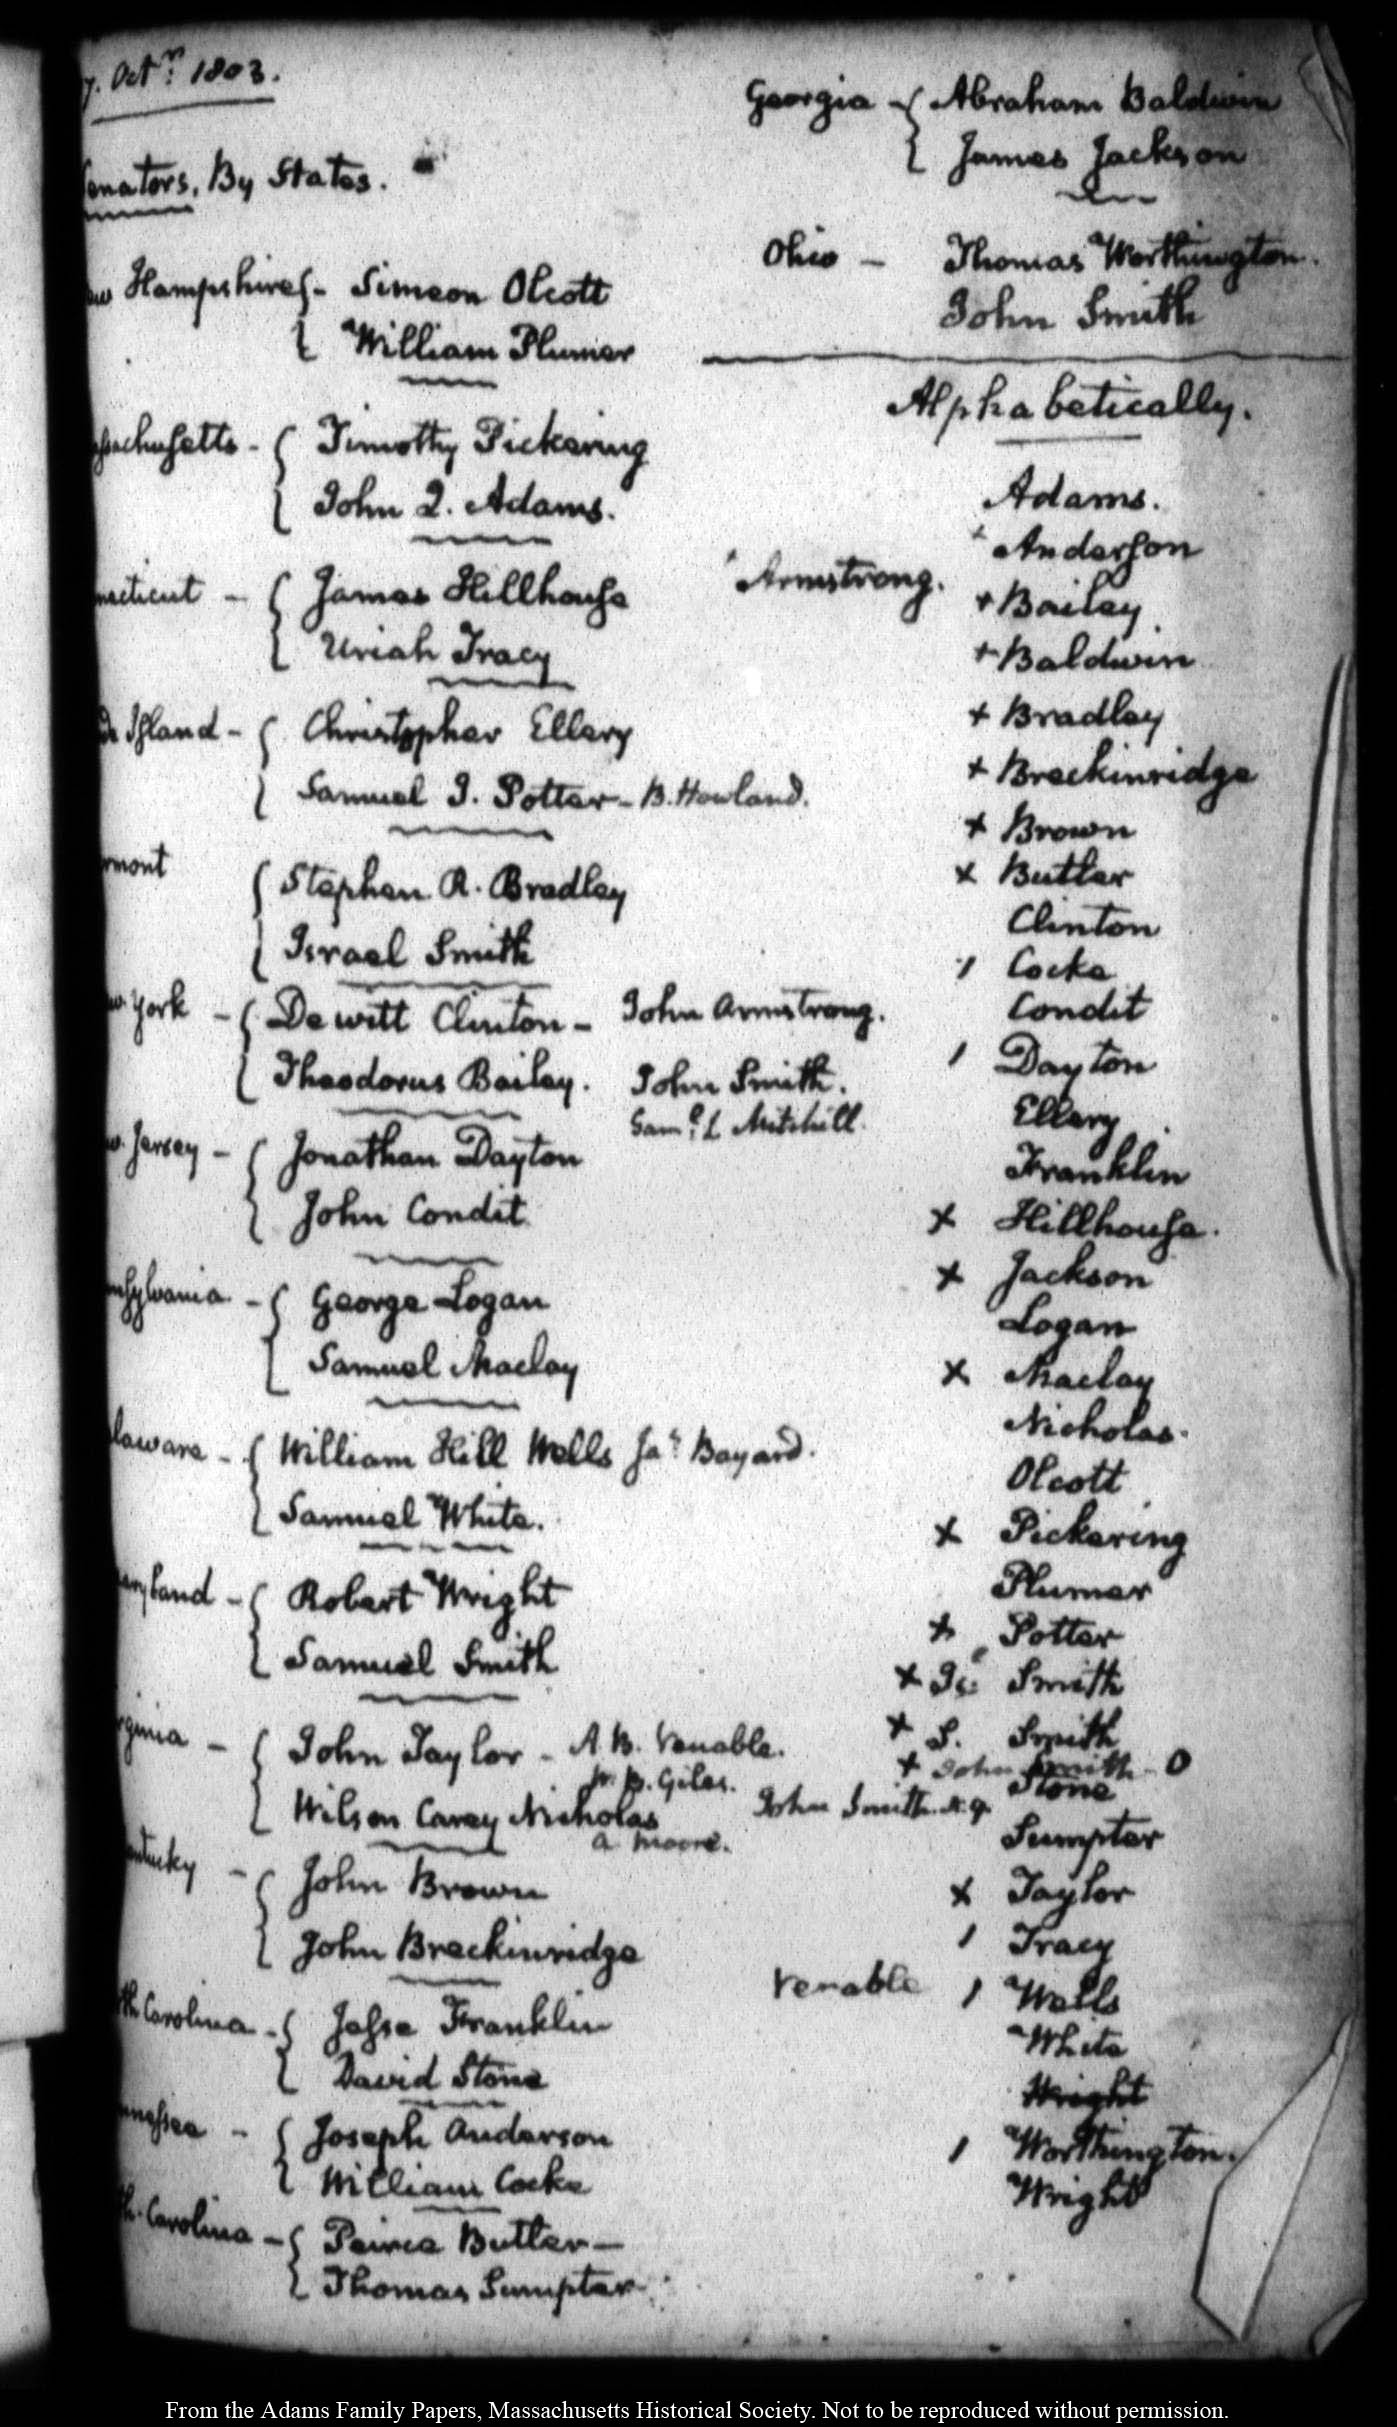 7. Octr. 1803.
Senators, By States.
Hampshire - Simeon Olcott
William Plumer
sachusetts - Timothy Pickering
John Q. Adams.
necticut - James Hillhouse
Uriah Tracy
Island - Christopher Ellery
Samuel J. Potter - B. Howland.
rmont Stephen R. Bradley
Israel Smith
York - Dewitt Clinton - John Armstrong.
Theodorus Bailey. John Smith.
Saml. L Mitchill.
Jersey - Jonathan Dayton
John Condit
nsylvania - George Logan
Samuel Maclay
laware - William Hill Wells Jas. Bayard.
Samuel White.
ryland - Robert Wright
Samuel Smith
ginia - John Taylor - A. B. Venable.
W. B. Giles.
Wilson Carey Nicholas
A. Moore.
ntucky - John Brown
John Breckinridge
th Carolina - Jesse Franklin
David Stone
nnessee - Joseph Anderson
William Cocke
th. Carolina - Peirce Butler -
Thomas Sumpter.
Georgia - Abraham Baldwin
James Jackson
Ohio - Thomas Worthington.
John Smith
Alphabetically.
Adams.
Anderson
Armstrong.
+ Bailey
+ Baldwin
+ Bradley
+ Breckinridge
+ Brown
x Butler
Clinton
Cocke
Condit
/ Dayton
Ellery
Franklin
x Hillhouse.
x Jackson
Logan
x Maclay
Nicholas.
Olcott
x Pickering
Plumer
x Potter
x Is: Smith
x S. Smith
x John Smith - O
John Smith. N. Y. Stone
Sumpter
x Taylor
/ Tracy
Venable / Wells
White
Wright
/ Worthington.
Wright
From the Adams Family Papers, Massachusetts Historical Society. Not to be reproduced without permission.